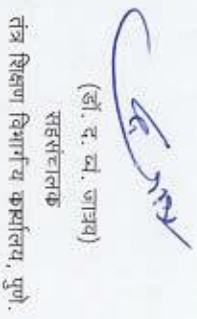 (डॉ. द. नं. जाधव)
सहसंचालक
तंत्र शिक्षण विभागीय कार्यालय, पुणे.